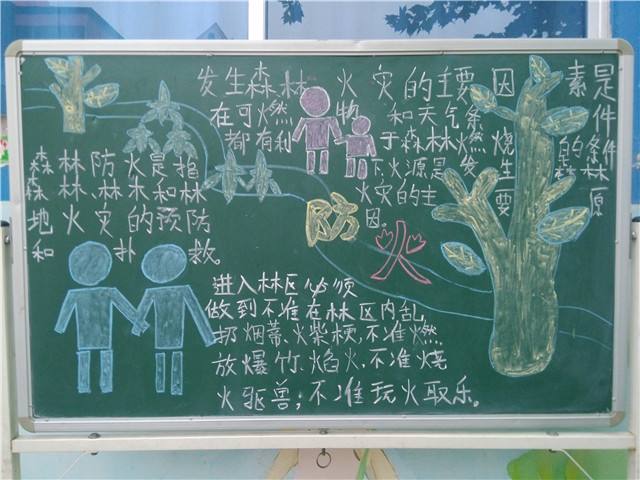 发生森林火灾的主要因素是
在可燃物和天气条件
都有利于森林燃烧的条件
下,火源是发生森林
火灾的主要原
因。
森林防火是指
森林、林木和林
地火灾的预防
和扑救。
防火
进入林区必须
做到不准在林区内乱
扔烟蒂、火柴梗,不准燃
放爆竹、焰火,不准烧
火驱兽;不准玩火取乐。